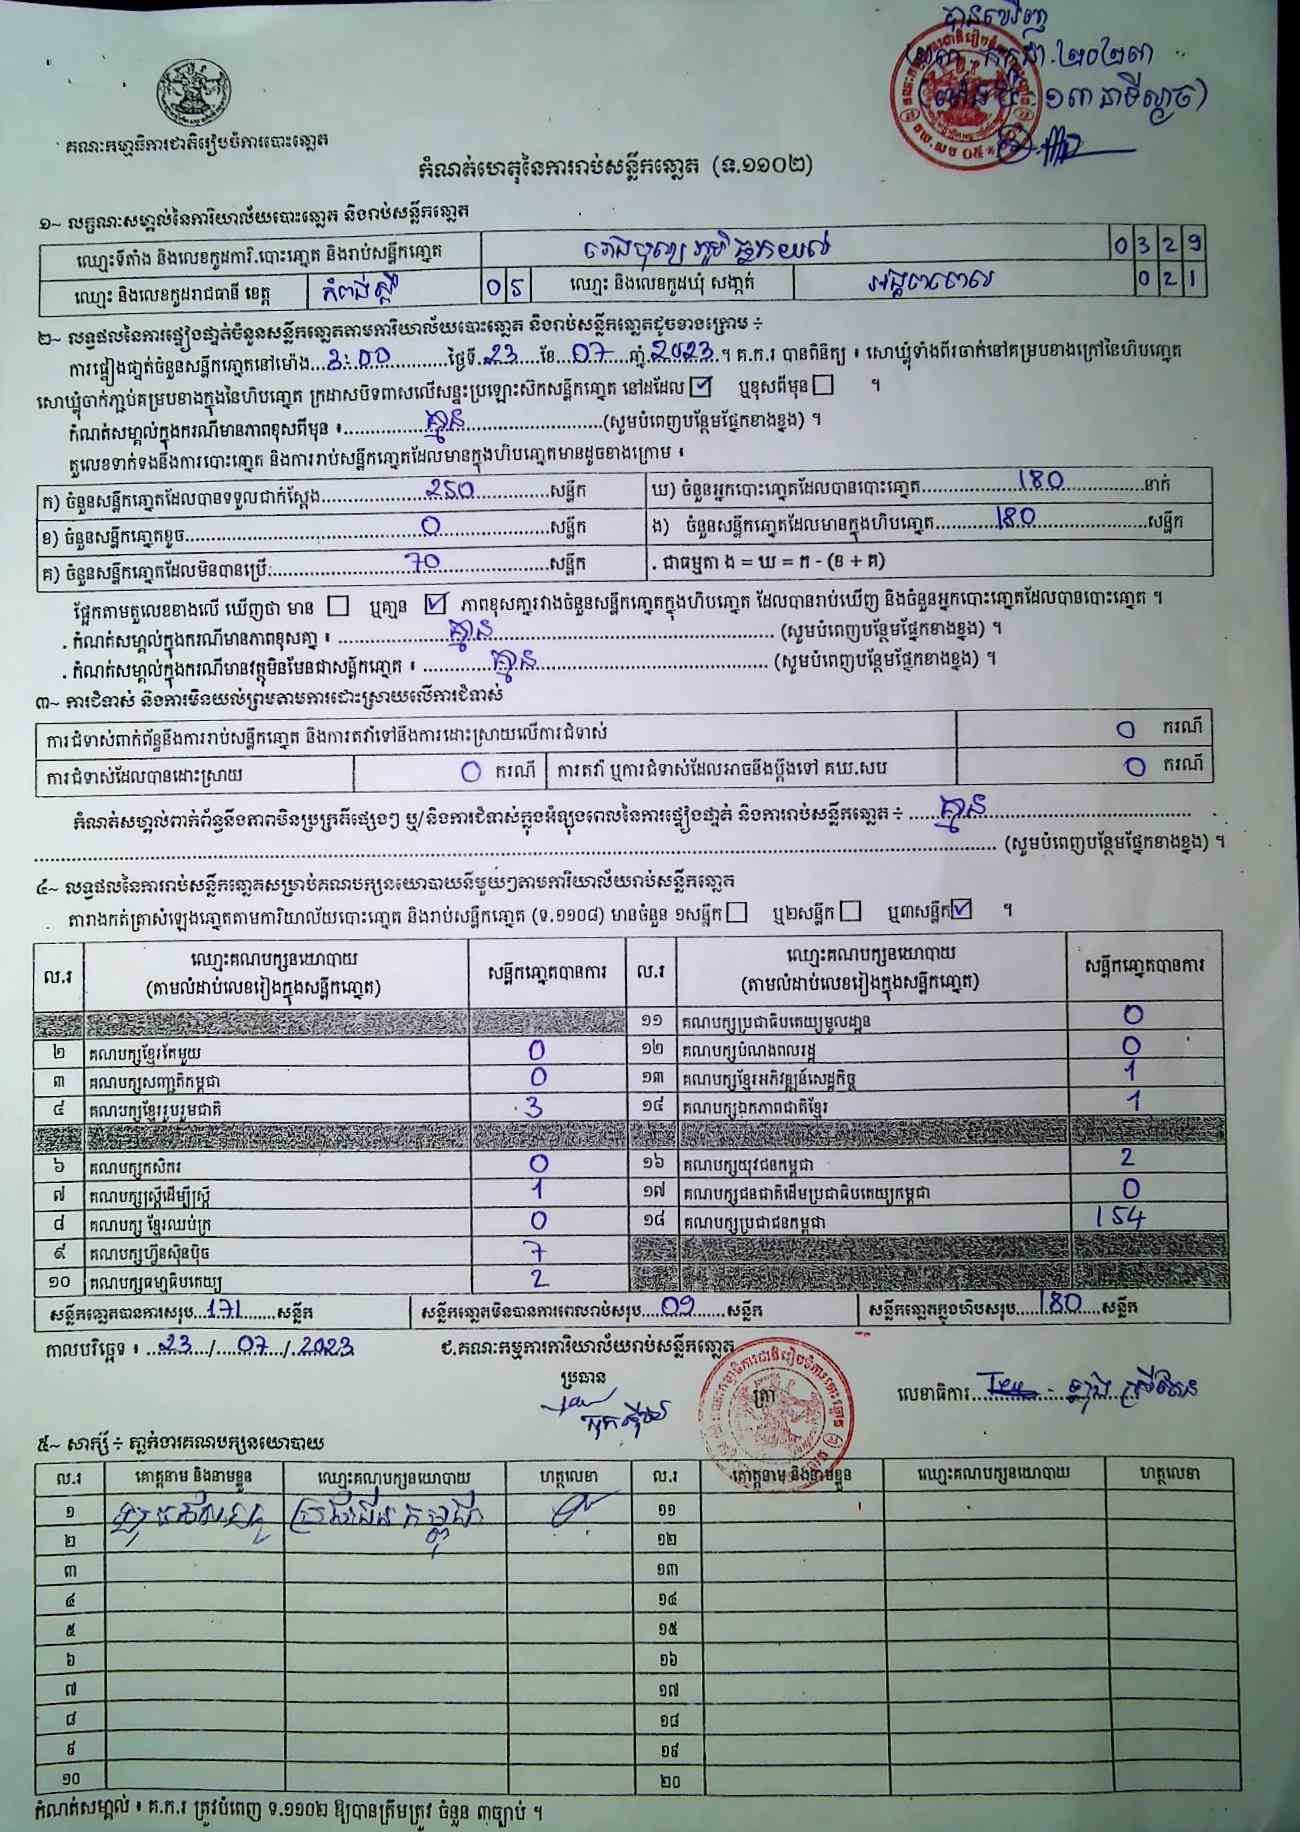 បានឃើញ
២០២៣
១៣ នាទីល្ងាច)
គណៈកម្មាធិការជាតិរៀបចំការបោះឆ្នោត
កំណត់ហេតុនៃការរាប់សន្លឹកឆ្នោត (ទ.១១០២)
១~ លក្ខណៈសម្គាល់នៃការិយាល័យបោះឆ្នោត និងរាប់សន្លឹកឆ្នោត
ឈ្មោះទីតាំង និងលេខកូដការិ.បោះឆ្នោត និងរាប់សន្លឹកឆ្នោត 0 3 2 9
ឈ្មោះ និងលេខកូដរាជធានី ខេត្ត កំពង់ស្ពឺ 0 5 ឈ្មោះ និងលេខកូដឃុំ សង្កាត់ 0 2 1
២~ លទ្ធផលនៃការផ្ទៀងផ្ទាត់ចំនួនសន្លឹកឆ្នោតតាមការិយាល័យបោះឆ្នោត និងរាប់សន្លឹកឆ្នោតដូចខាងក្រោម ÷
ការផ្ទៀងផ្ទាត់ចំនួនសន្លឹកឆ្នោតនៅម៉ោង...3:00...ថ្ងៃទី.23...ខែ...07...ឆ្នាំ.2023.។ គ.ក.រ បានពិនិត្យ ៖ សោឃ្លុំទាំងពីរចាក់នៅគម្របខាងក្រៅនៃហិបឆ្នោត
សោឃ្លុំចាក់ភ្ជាប់គម្របខាងក្នុងនៃហិបឆ្នោត ក្រដាសបិទពាសលើសន្ទះប្រឡោះស៊កសន្លឹកឆ្នោត នៅដដែល ☑ ឬខុសពីមុន ☐ ។
កំណត់សម្គាល់ក្នុងករណីមានភាពខុសពីមុន ៖...គ្មាន...(សូមបំពេញបន្ថែមផ្នែកខាងខ្នង) ។
តួលេខទាក់ទងនឹងការបោះឆ្នោត និងការរាប់សន្លឹកឆ្នោតដែលមានក្នុងហិបឆ្នោតមានដូចខាងក្រោម ៖
ក) ចំនួនសន្លឹកឆ្នោតដែលបានទទួលជាក់ស្តែង...250...សន្លឹក ឃ) ចំនួនអ្នកបោះឆ្នោតដែលបានបោះឆ្នោត...180...នាក់
ខ) ចំនួនសន្លឹកឆ្នោតខូច...0...សន្លឹក ង) ចំនួនសន្លឹកឆ្នោតដែលមានក្នុងហិបឆ្នោត...180...សន្លឹក
គ) ចំនួនសន្លឹកឆ្នោតដែលមិនបានប្រើ:...70...សន្លឹក . ជាធម្មតា ង = ឃ = ក - (ខ + គ)
ផ្អែកតាមតួលេខខាងលើ ឃើញថា មាន ☐ ឬគ្មាន ☑ ភាពខុសគ្នារវាងចំនួនសន្លឹកឆ្នោតក្នុងហិបឆ្នោត ដែលបានរាប់ឃើញ និងចំនួនអ្នកបោះឆ្នោតដែលបានបោះឆ្នោត ។
. កំណត់សម្គាល់ក្នុងករណីមានភាពខុសគ្នា ៖ ...គ្មាន... (សូមបំពេញបន្ថែមផ្នែកខាងខ្នង) ។
. កំណត់សម្គាល់ក្នុងករណីមានវត្ថុមិនមែនជាសន្លឹកឆ្នោត ៖ ...គ្មាន... (សូមបំពេញបន្ថែមផ្នែកខាងខ្នង) ។
៣~ ការជំទាស់ និងការមិនយល់ព្រមតាមការដោះស្រាយលើការជំទាស់
ការជំទាស់ពាក់ព័ន្ធនឹងការរាប់សន្លឹកឆ្នោត និងការតវ៉ាទៅនឹងការដោះស្រាយលើការជំទាស់ 0 ករណី
ការជំទាស់ដែលបានដោះស្រាយ 0 ករណី ការតវ៉ា ឬការជំទាស់ដែលអាចនឹងប្តឹងទៅ គឃ.សប 0 ករណី
កំណត់សម្គាល់ពាក់ព័ន្ធនឹងភាពមិនប្រក្រតីផ្សេងៗ ឬ/និងការជំទាស់ក្នុងអំឡុងពេលនៃការផ្ទៀងផ្ទាត់ និងការរាប់សន្លឹកឆ្នោត ÷ ...គ្មាន...
... (សូមបំពេញបន្ថែមផ្នែកខាងខ្នង) ។
៤~ លទ្ធផលនៃការរាប់សន្លឹកឆ្នោតសម្រាប់គណបក្សនយោបាយនីមួយៗតាមការិយាល័យរាប់សន្លឹកឆ្នោត
តារាងកត់ត្រាសំឡេងឆ្នោតតាមការិយាល័យបោះឆ្នោត និងរាប់សន្លឹកឆ្នោត (ទ.១១០៨) មានចំនួន ១សន្លឹក ☐ ឬ២សន្លឹក ☐ ឬ៣សន្លឹក ☑ ។
ល.រ ឈ្មោះគណបក្សនយោបាយ (តាមលំដាប់លេខរៀងក្នុងសន្លឹកឆ្នោត) សន្លឹកឆ្នោតបានការ ល.រ ឈ្មោះគណបក្សនយោបាយ (តាមលំដាប់លេខរៀងក្នុងសន្លឹកឆ្នោត) សន្លឹកឆ្នោតបានការ
១១ គណបក្សប្រជាធិបតេយ្យមូលដ្ឋាន 0
២ គណបក្សខ្មែរតែមួយ 0 ១២ គណបក្សបំណងពលរដ្ឋ 0
៣ គណបក្សសញ្ជាតិកម្ពុជា 0 ១៣ គណបក្សខ្មែរអភិវឌ្ឍន៍សេដ្ឋកិច្ច 1
៤ គណបក្សខ្មែររួបរួមជាតិ 3 ១៤ គណបក្សឯកភាពជាតិខ្មែរ 1
៦ គណបក្សកសិករ 0 ១៦ គណបក្សយុវជនកម្ពុជា 2
៧ គណបក្សស្ត្រីដើម្បីស្ត្រី 1 ១៧ គណបក្សជនជាតិដើមប្រជាធិបតេយ្យកម្ពុជា 0
៨ គណបក្ស ខ្មែរឈប់ក្រ 0 ១៨ គណបក្សប្រជាជនកម្ពុជា 154
៩ គណបក្សហ៊្វុនស៊ិនប៉ិច 7
១០ គណបក្សធម្មាធិបតេយ្យ 2
សន្លឹកឆ្នោតបានការសរុប...171...សន្លឹក សន្លឹកឆ្នោតមិនបានការពេលរាប់សរុប...09...សន្លឹក សន្លឹកឆ្នោតក្នុងហិបសរុប...180...សន្លឹក
កាលបរិច្ឆេទ ៖ ...23.../...07.../...2023 ជ.គណៈកម្មការការិយាល័យរាប់សន្លឹកឆ្នោត
ប្រធាន
ត្រា
លេខាធិការ
៥~ សាក្សី ÷ ភ្នាក់ងារគណបក្សនយោបាយ
ល.រ គោត្តនាម និងនាមខ្លួន ឈ្មោះគណបក្សនយោបាយ ហត្ថលេខា ល.រ គោត្តនាម និងនាមខ្លួន ឈ្មោះគណបក្សនយោបាយ ហត្ថលេខា
១ ប្រជាជនកម្ពុជា ១១
២ ១២
៣ ១៣
៤ ១៤
៥ ១៥
៦ ១៦
៧ ១៧
៨ ១៨
៩ ១៩
១០ ២០
កំណត់សម្គាល់ ៖ គ.ក.រ ត្រូវបំពេញ ទ.១១០២ ឱ្យបានត្រឹមត្រូវ ចំនួន ៣ច្បាប់ ។